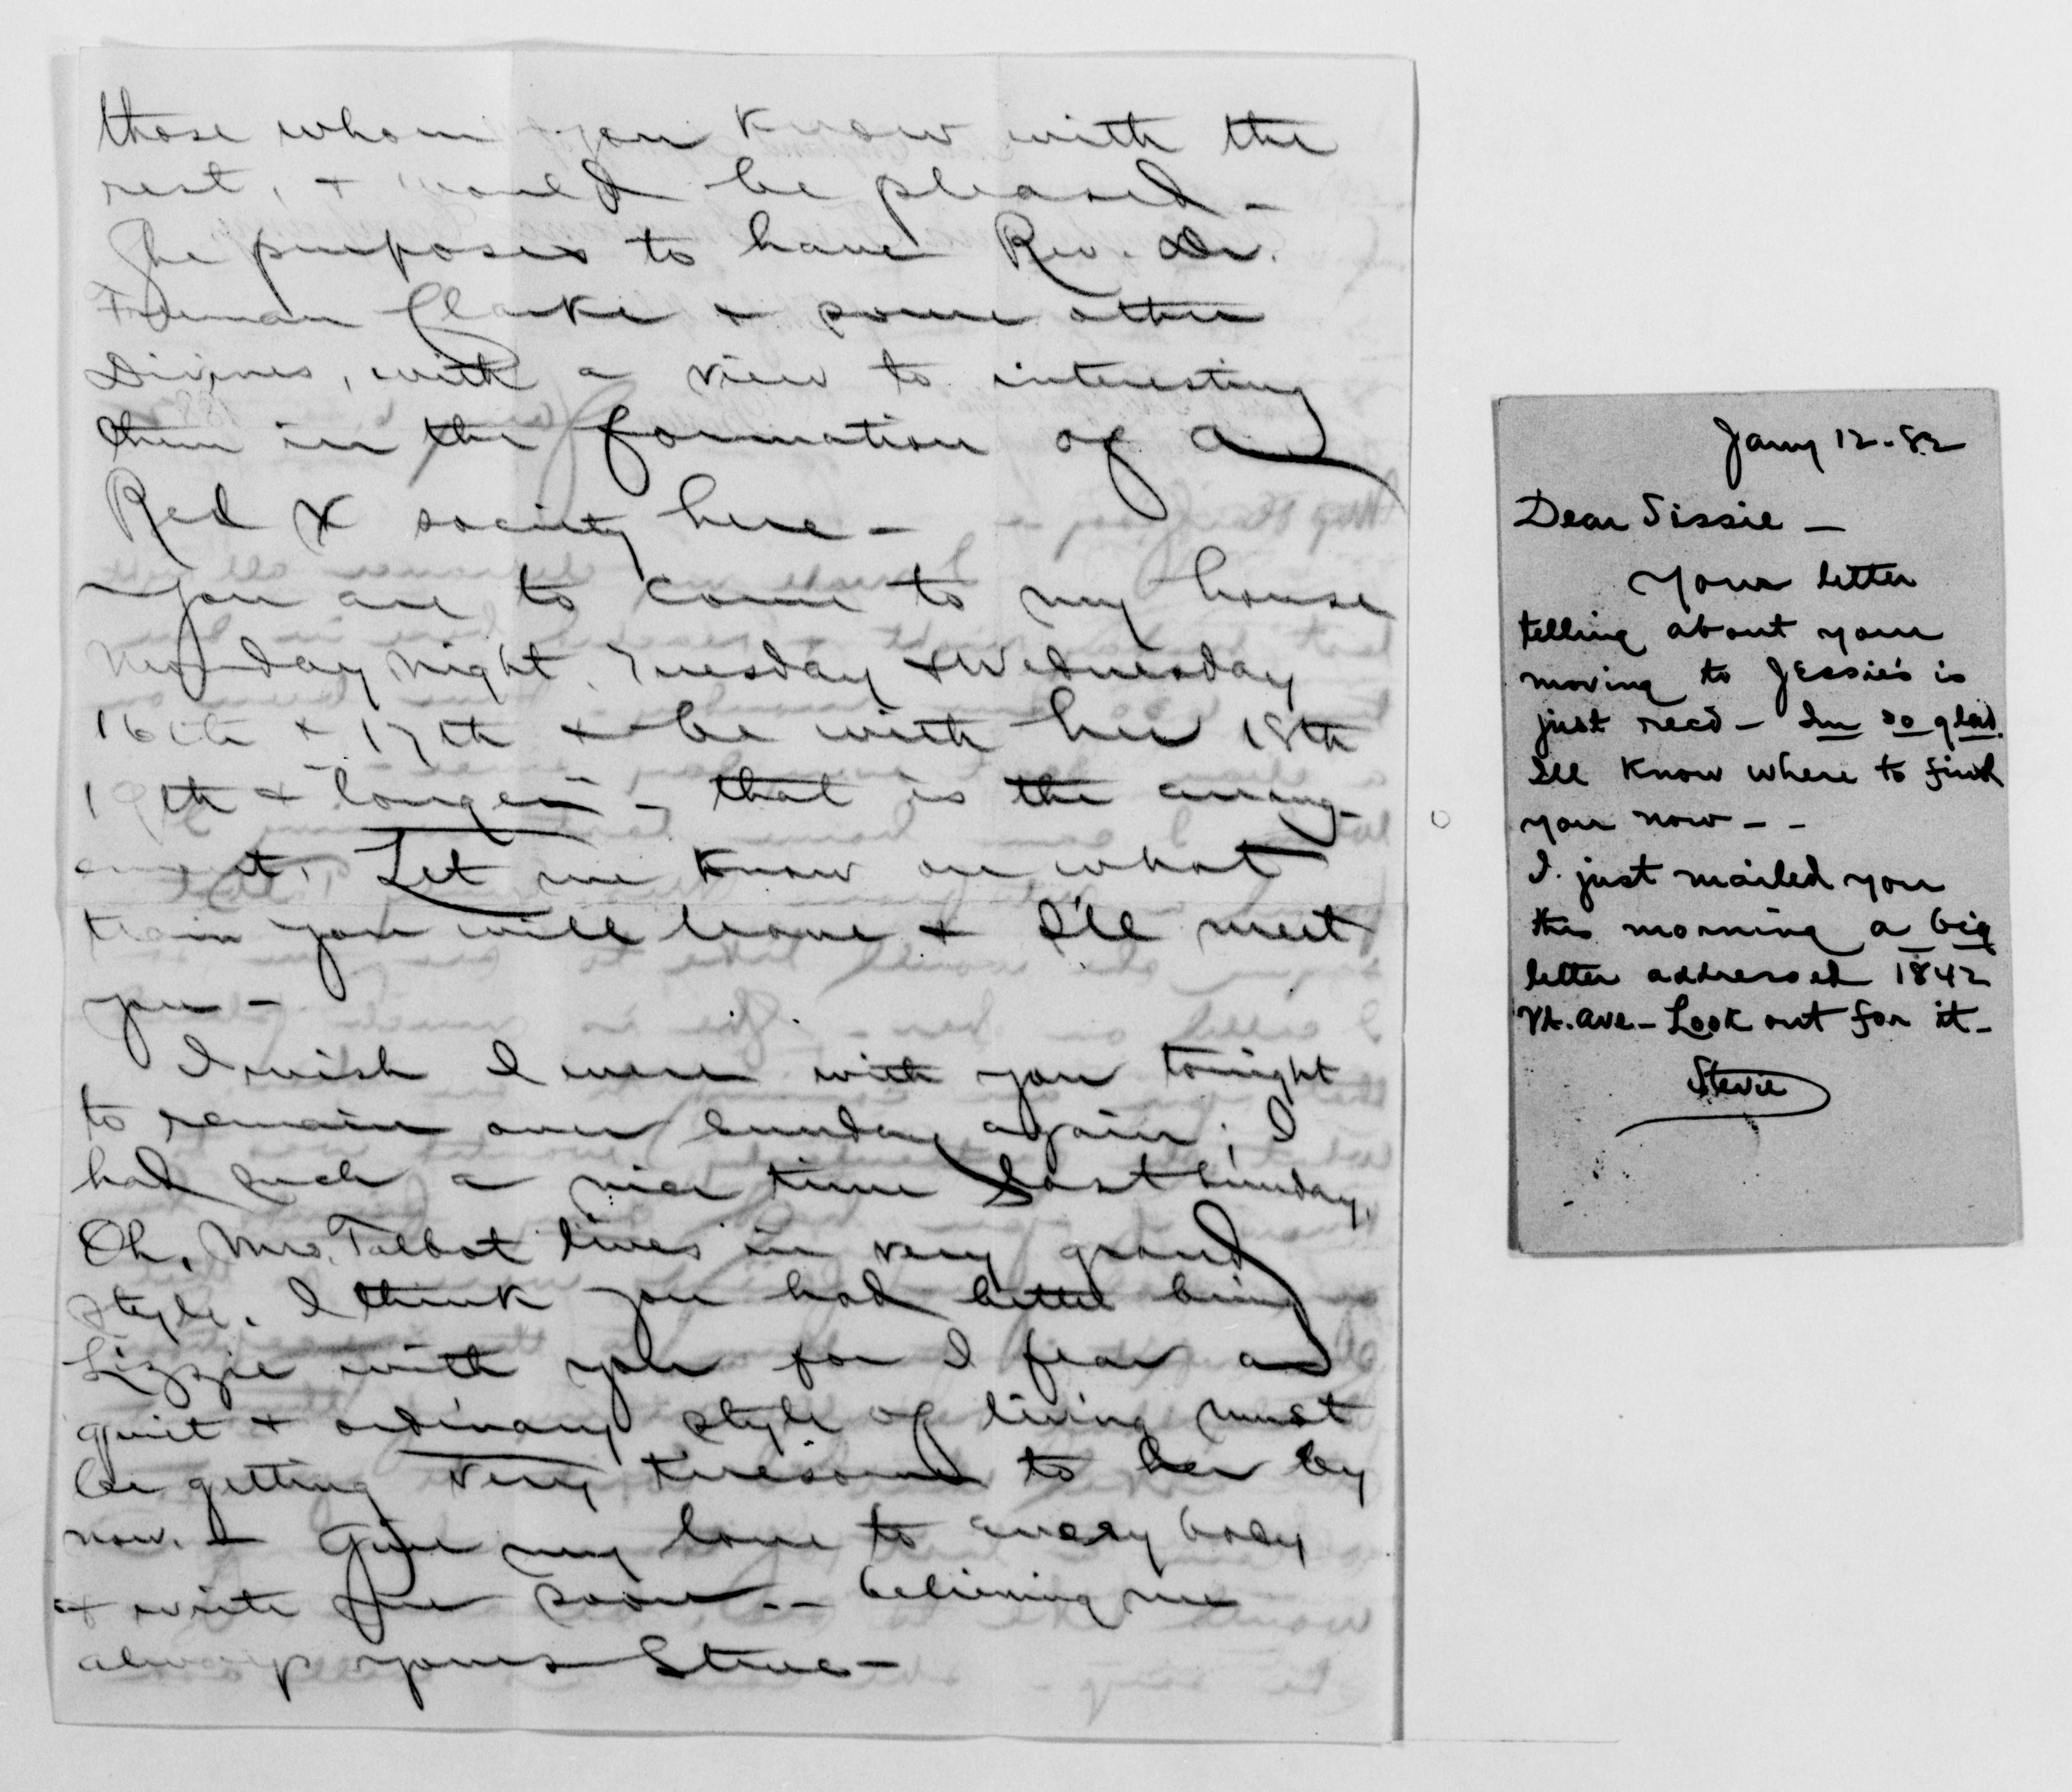 those whom you know with the
rest, + would be pleased –
She purposes to have Rev. Dr.
Freeman Clarke + some other
Divines, with a view to interesting
them in the formation of a
Red X society here –
You are to come to my house
Monday night, Tuesday + Wednesday
16th + 17th + be with her 18th
19th + "longer" – that is the arrang-
ement. Let me know on what
train you will leave + I'll meet
you –
I wish I were with you tonight
to remain over Sunday again; I
had such a nice time last Sunday,
Oh, Mrs. Talbot lives in very grand
style. I think you had better bring
Lizzie with you for I fear a
quiet + ordinary style of living must
be getting very tiresome to her by
now. – Give my love to every body
+ write me soon – – believing me
always yours Steve –
Jany 12 - 82
Dear Sissie –
Your letter
telling about your
moving to Jessie's is
just recd – Im so glad.
Ill know where to find
you now – –
I just mailed you
this morning a big
letter addressed 1842
Vt. Ave. – Look out for it –
Stevie